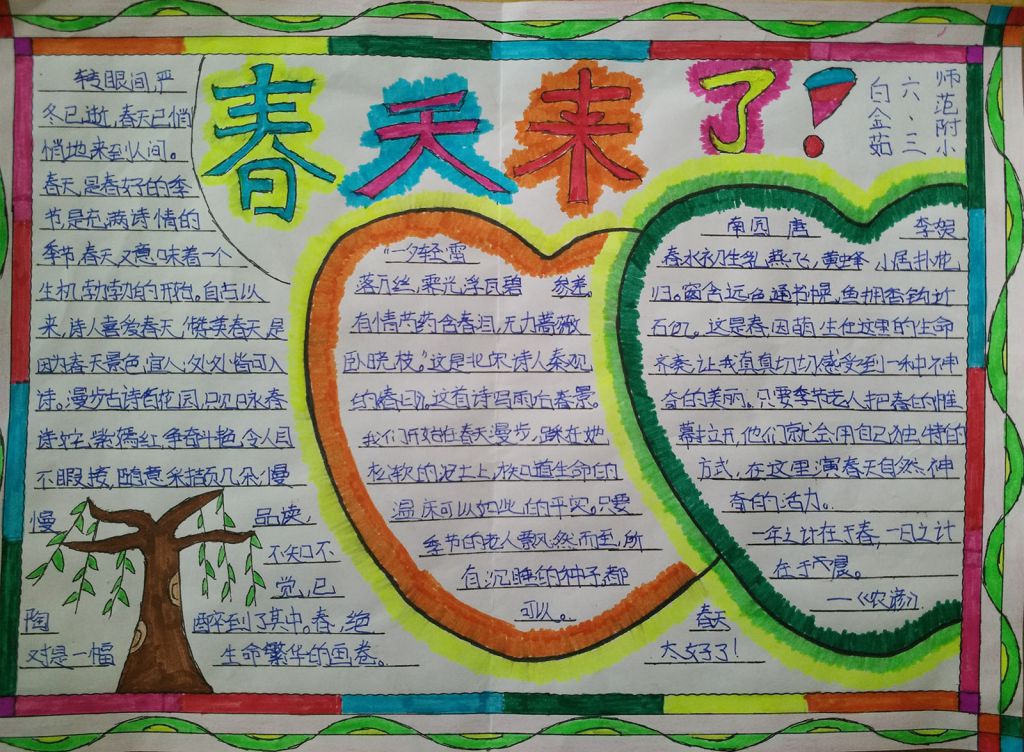 春天来了!
师范附小
六、三
白金茹
转眼间,严
冬已逝,春天已悄
悄地来到人间。
春天,是春好的季
节,是充满诗情的
季节,春天又意味着一个
生机勃勃的开始。自古以
来,诗人喜爱春天,赞美春天,是
因为春天景色宜人,处处皆可入
诗。漫步古诗百花园,只见咏春
诗姹紫嫣红,争奋斗艳,令人目
不暇接,随意采撷几朵,慢
慢 品读,
不知不
觉,已
陶 醉到了其中。春,绝
对是一幅 生命繁华的画卷。
"一夕轻雷
落万丝,霁光浮瓦碧 参差。
有情芍药含春泪,无力蔷薇
卧晓枝。"这是北宋诗人秦观
的《春日》。这首诗写雨后春景。
我们开始在春天漫步,踩在她
松软的泥土上,
温床可以如此的平实。只要
季节的老人飘然而至,所
有沉睡的种子,都
可以。
南园 唐 李贺
春水初生乳燕飞,黄蜂小尾扑花
归。窗含远色通书幌,鱼拥香钩近
石矶。这是春因萌生在这里的生命
齐奏,让我真真切切感受到一种神
奇的美丽。只要季节老人把春的帷
幕拉开,他们就会用自己独特的
方式,在这里演春天自然神
奇的活力。
一年之计在于春,一日之计
在于晨。
—《农谚》
春天
太好了!